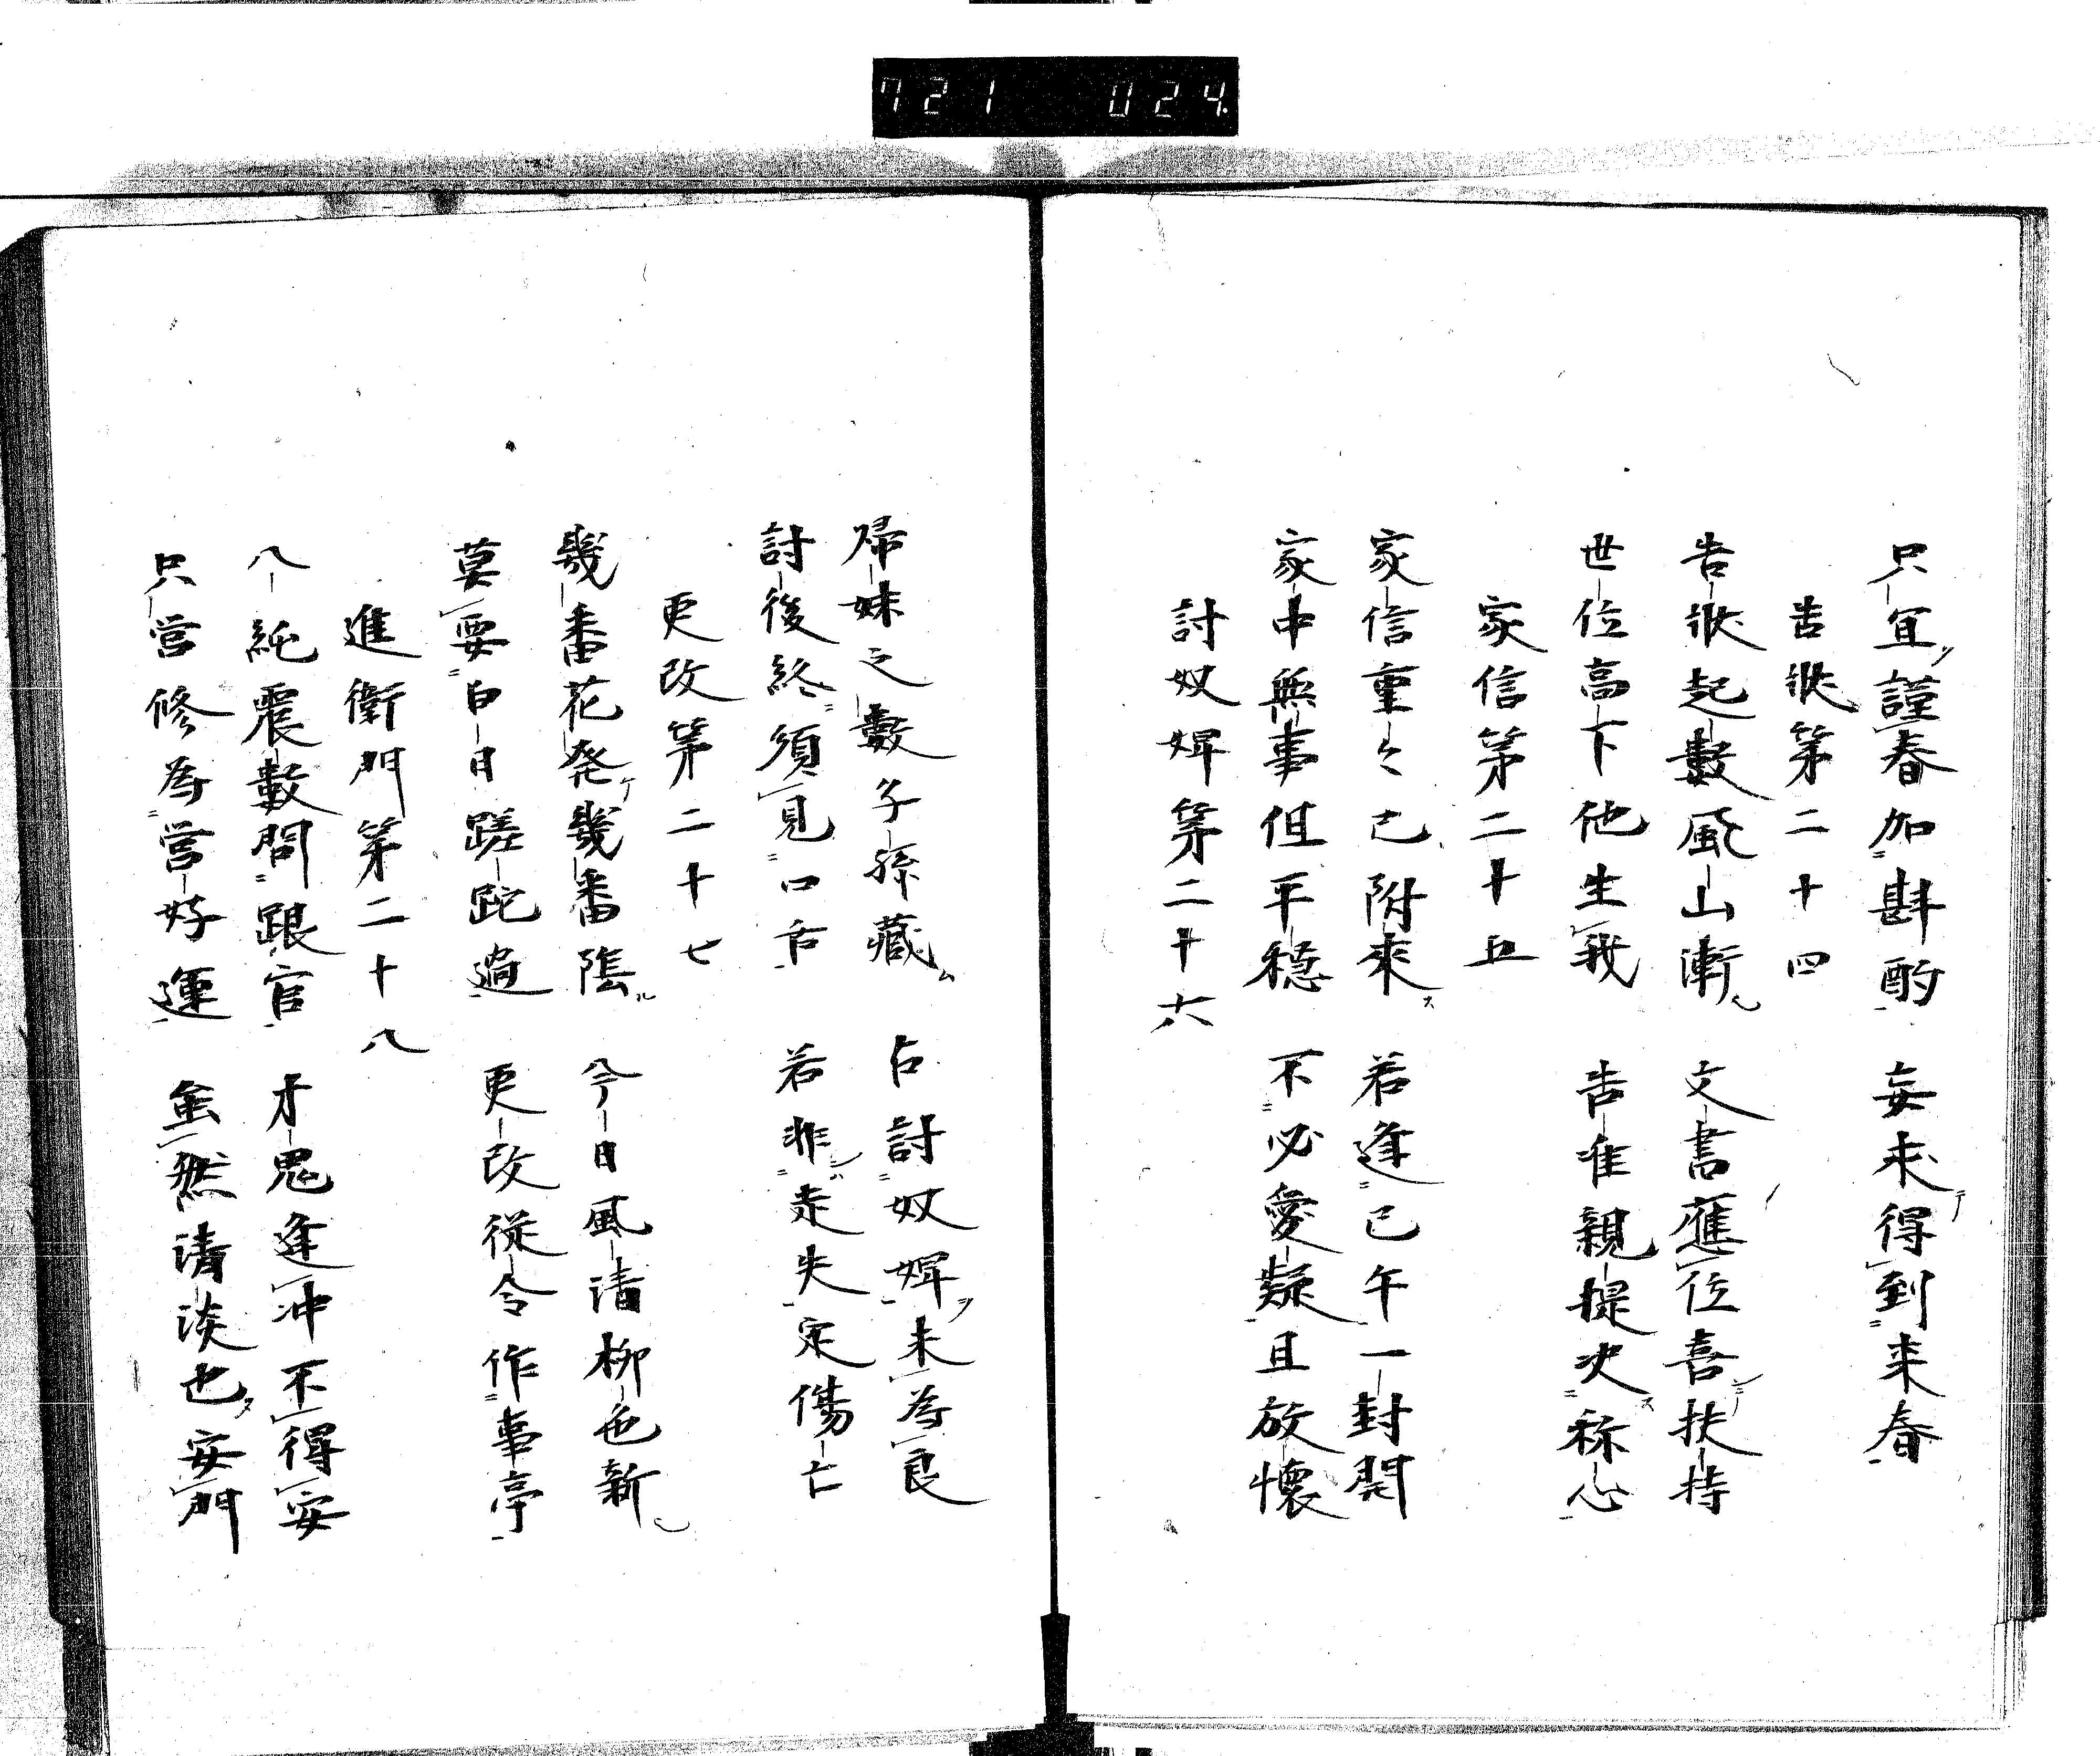 721 024
只宜謹春加斟酌 妄来得到来春
告狀第二十四
告狀起數風山漸 文書應位喜扶持
世位高下他生我 告准親提决称心
家信第二十五
家信重々已附來 若逢已午一封開
家中無事但平穏 不必憂疑且放懷
討奴婢第二十六
帰妹之數子孫藏 占討奴婢未為良
討後終須見口舌 若非走失定傷亡
更改第二十七
幾番花発幾番陰 今日風清柳色新
莫要白日蹉跎過 更改從令作事亭
進衛門第二十八
八純震數問跟官 才鬼逢冲不得安
只営修為営好運 虽然清淡也安門